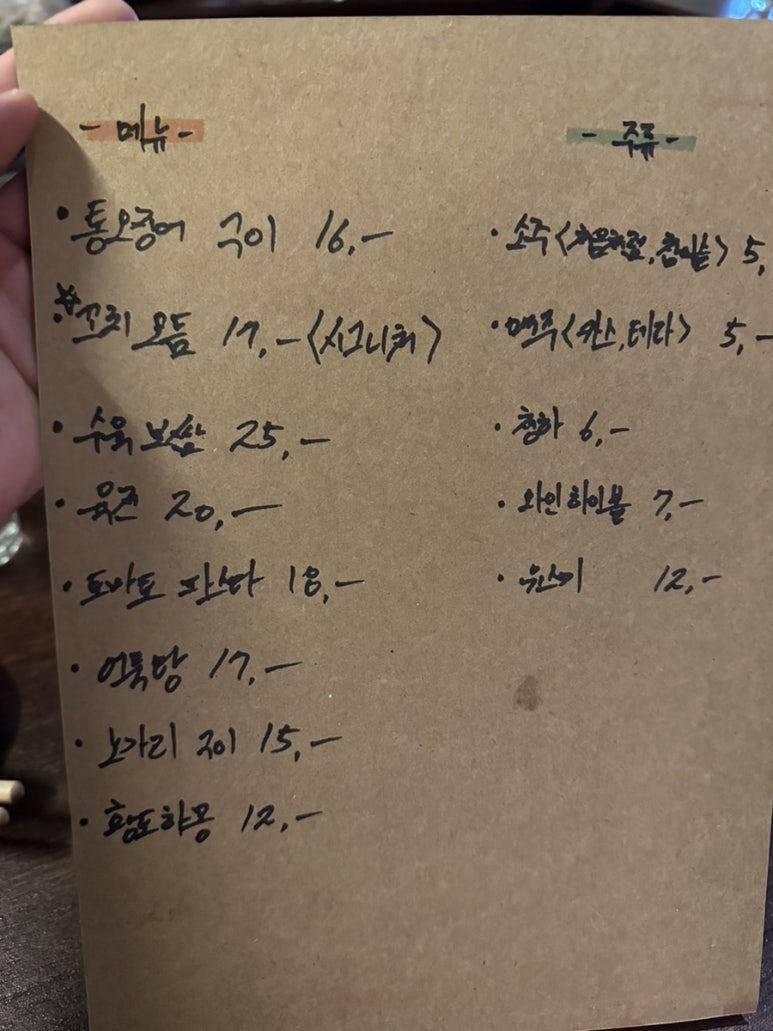 - 메뉴 -
• 통오징어 구이 16,-
※꼬치 모듬 17,-<시그니처>
• 수육 보쌈 25,-
• 육전 20,-
• 토마토 파스타 18,-
• 어묵탕 17,-
• 노가리 구이 15,-
• 황도하몽 12,-
- 주류 -
• 소주<처음처럼, 참이슬> 5,
• 맥주<카스, 테라> 5,-
• 청하 6,-
• 와인하이볼 7,-
• 위스키 12,-